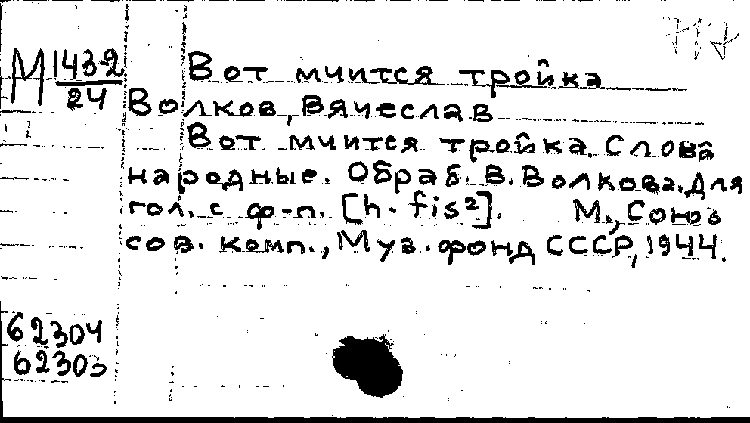 М 1432/24
Вот мчится тройка
Волков, Вячеслав
Вот мчится тройка. Слова
народные. Обраб. В. Волкова. Для
гол. с ф-п. [h. fis²]. М., Союз
сов. комп., Муз. фонд СССР, 1944.
62304
62303